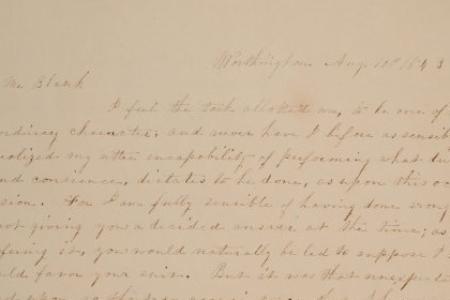 Worthington Aug 10th 1843
Mr Blank
I feel the task allotted me, to be one of
ordinary character; and never have I before so sensibl
ealized my utter incapability of performing what du
nd consience, dictates to be done, as upon this oc
sion. For I am fully sensible of having done wrong
not giving you a decided answer at the time; as
fering is, you would naturally be led to suppose I
uld favor your suit. But it was that unexpected